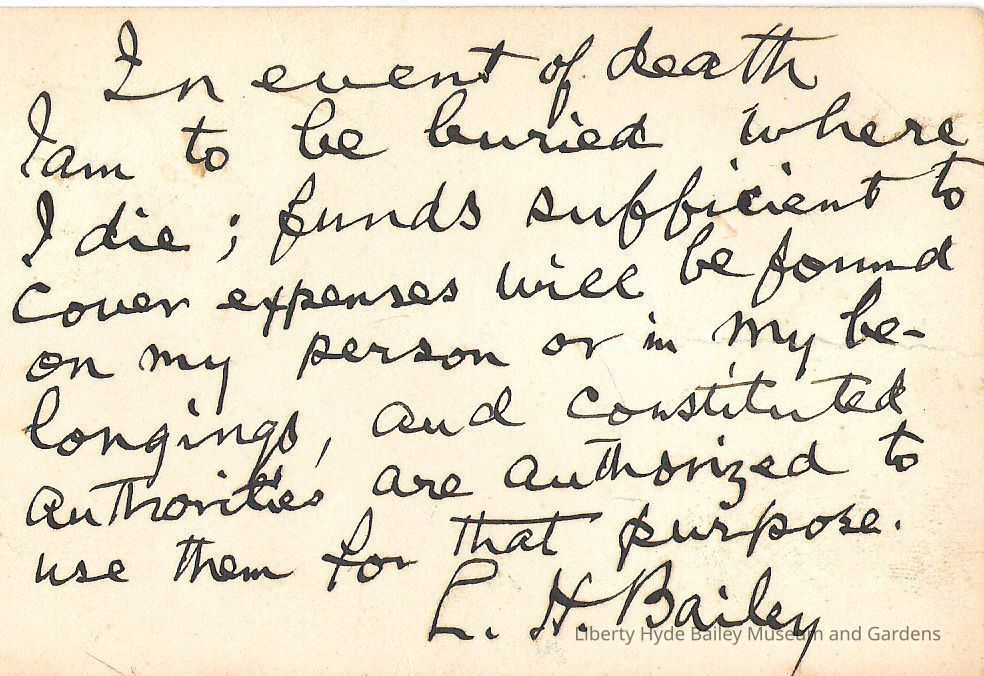 In event of death
I am to be buried where
I die; funds sufficient to
cover expenses will be found
on my person or in my be-
longings, and constituted
authorities are authorized to
use them for that purpose.
L. H. Bailey
Liberty Hyde Bailey Museum and Gardens